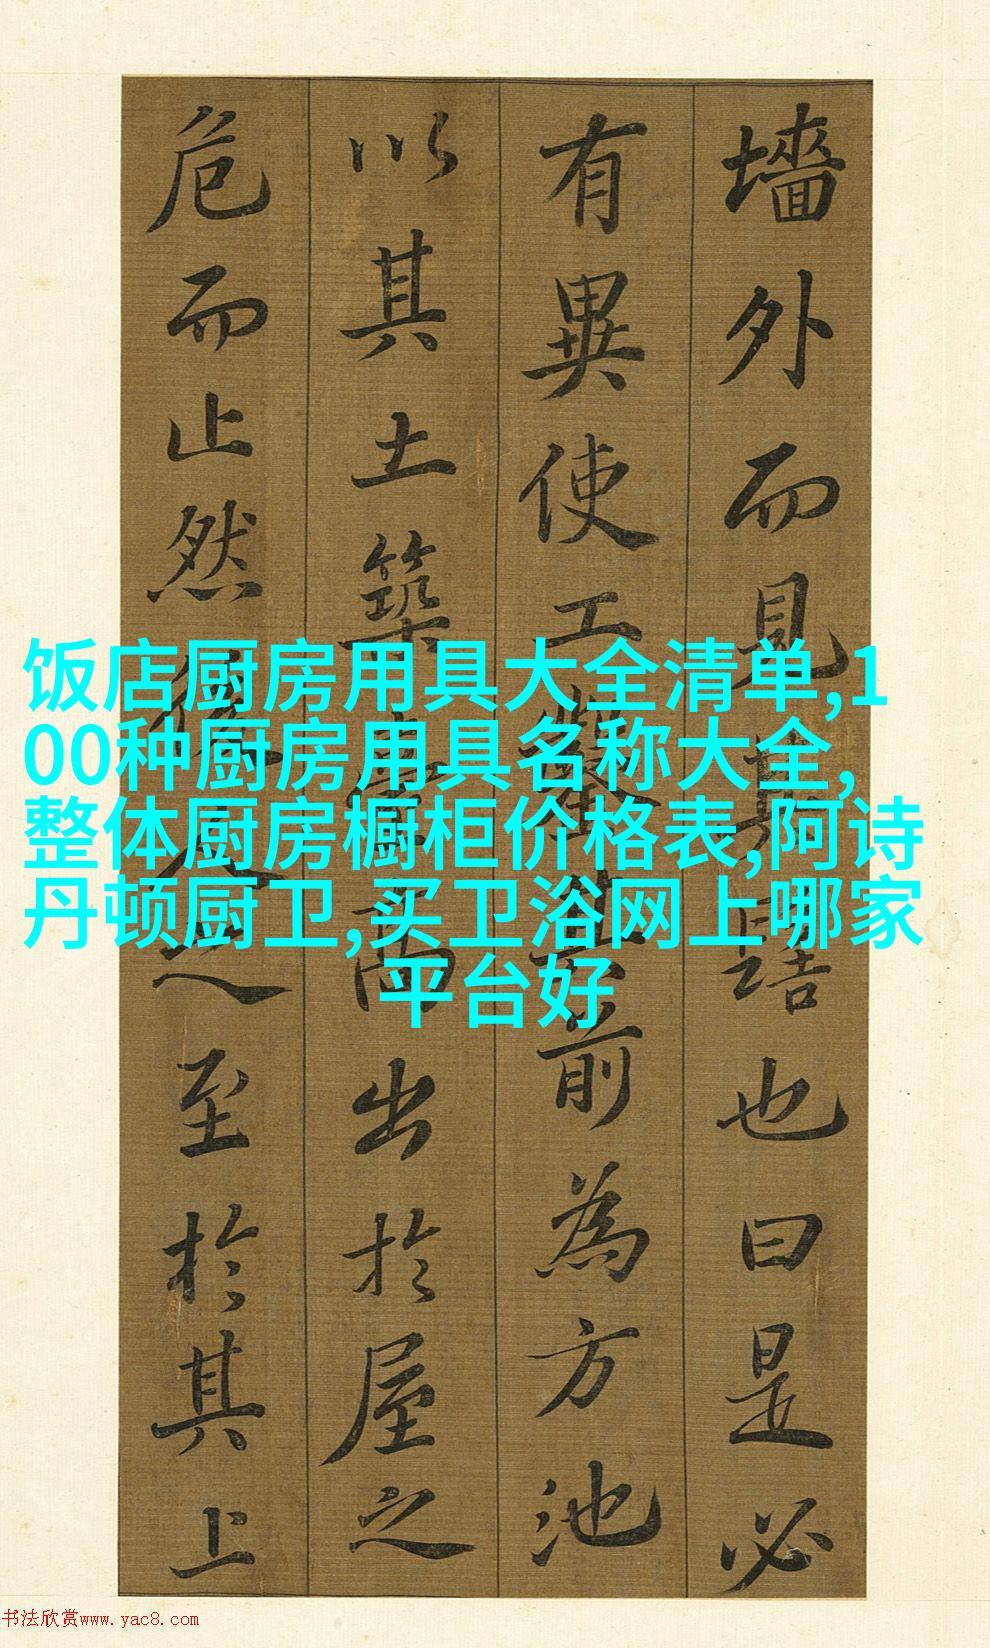 墻外而見其髻也曰是必
有異使工鑿其前為方池
以其土築臺高出於屋之
危而止然後人之至於其上
饭店厨房用具大全清单,1
00种厨房用具名称大全,
整体厨房橱柜价格表,阿诗
丹顿厨卫,买卫浴网上哪家
平台好
书法欣赏www.yac8.com